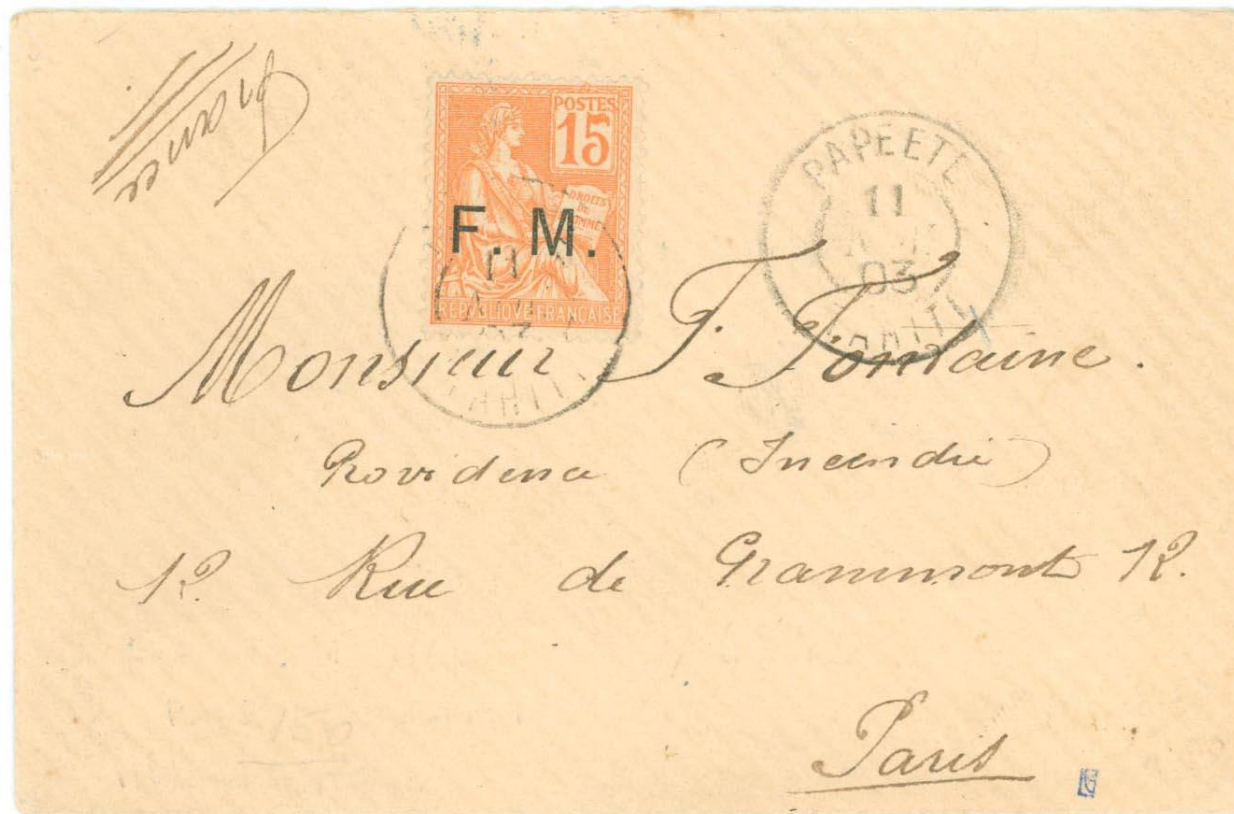 France
POSTES
15
DROITS
DE
F. M.
REPUBLIQUE FRANÇAISE
11
TAHITI
PAPEETE
11
03
TAHITI
Monsieur F. Fontaine.
Providence (Incendie)
12 Rue de Grammont 12.
Paris